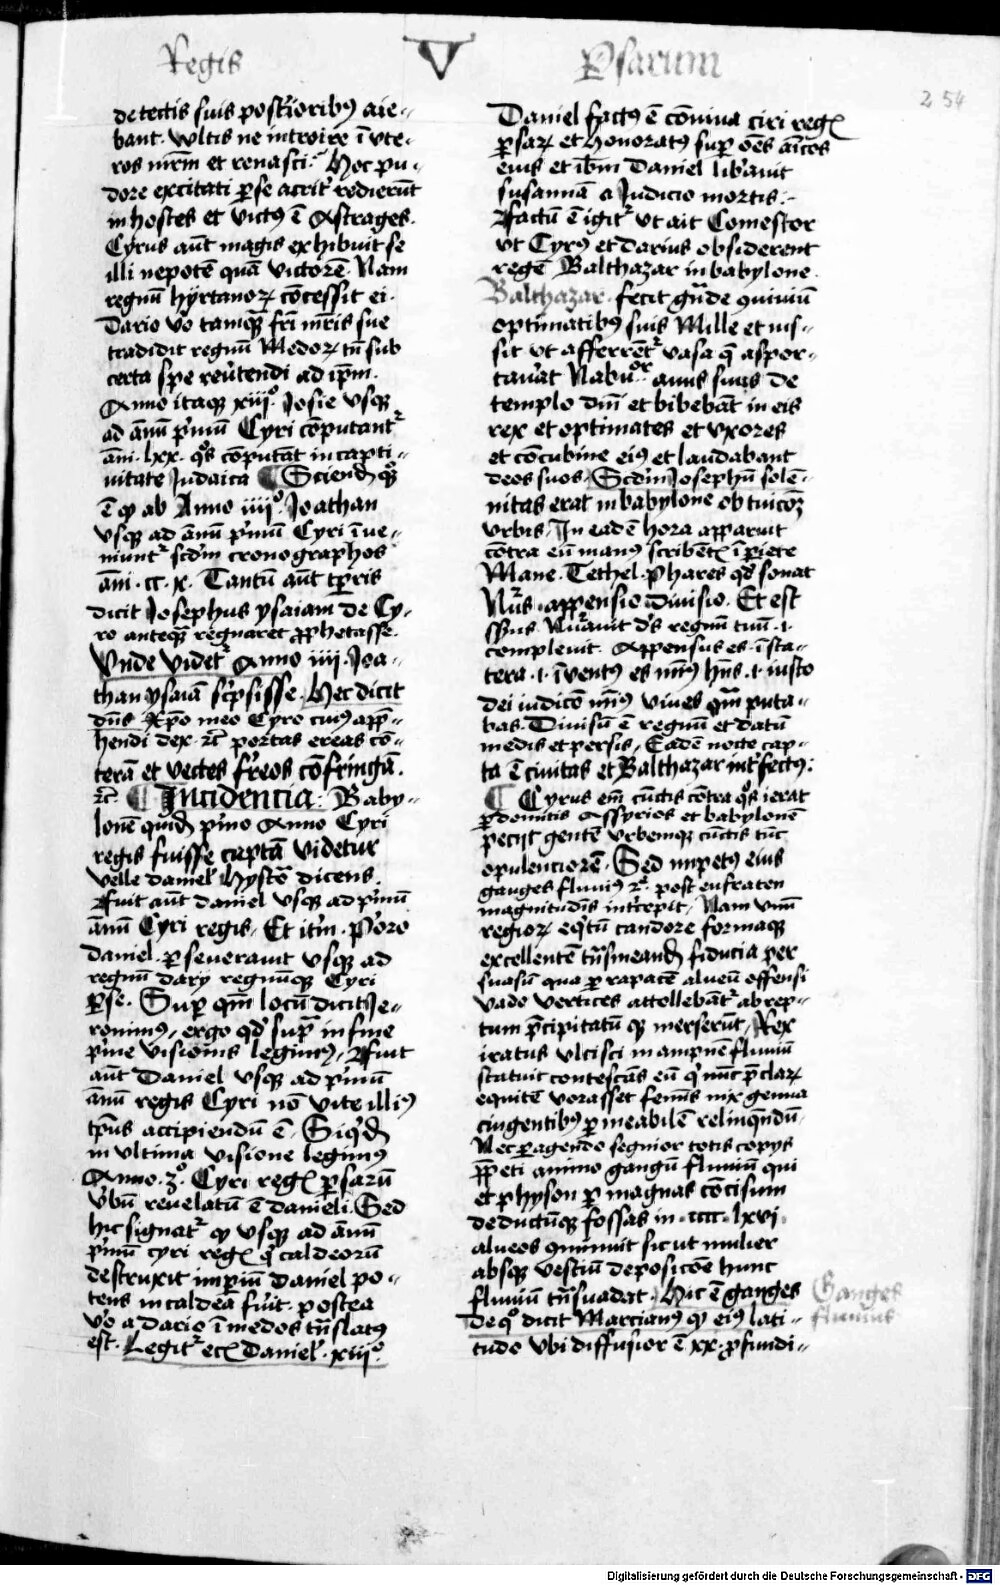 Regis V Psarum
254
detectis suis post̾ioribꝰ aie-
bant. Vltis ne introire ī vte-
ros mr̄m et renasci. Hoc pu-
dore excitati ꝑse acrit̾ redierūt
in hostes et victꝰ ē Astrages.
Cyrus aūt magis exhibuit se
illi nepotē quā victorē. Nam
regnū hyrtanoꝝ cōcessit ei.
Dario v̾o tamqꝫ fr̄i mr̄is sue
tradidit regnū Medoꝝ tn̄ sub
certa spe reu̾tendi ad ip̄m.
Anno itaqꝫ xiijº Josie vsqꝫ
ad ānū p̾mū Cyri cōputant᷑
āni. lxx. qͦs cōputat in capti-
uitate Judaica ¶ Sciendꝫ qͦꝫ
ē ꝙ ab Anno iiijº. Joathan
vsqꝫ ad ānū p̾mū Cyri īue-
niunt᷑ scd̾m cronographos
āni. cc. x. Tantū aūt tp̄ris
dicit Josephus ysaiam de Cy-
ro anteqꝫ regnaret ꝓphetasse.
Vnde videt᷑ Anno iiij. Joa-
than ysaiā sc̾psisse. Hec dicit
dn̄s xp̄o meo Cyro cuiꝰ appͤ-
hendi dex. ⁊c̄ portas ereas cō-
terā et vectes f̾reos cōfringā.
⁊c̄. ¶ Incidencia: Baby-
lonē quidē p̾mo Anno Cyri
regis fuisse captā videtur
velle daniel̾ hystō dicens.
Fuit aūt daniel vsqꝫ ad p̾mū
ānū Cyri regis. Et it̾m. Porro
daniel. ꝑseuerauit vsqꝫ ad
regnū darij regnūqꝫ Cyri
ꝑse. Suꝑ qm̄ locū dicit Je-
ronimꝰ, ergo qd̾ sup̾ in fine
p̾me visionis legimꝰ, Fuit
aūt Daniel vsqꝫ ad p̾mū
ānū regis Cyri nō vite illiꝰ
tp̄us accipiendū ē. Siqͥdē
in vltima visione legimꝰ
Anno. 3º. Cyri regꝭ ꝑsarū
v̾bū reuelatū ē danieli. Sed
hic signat᷑ ꝙ vsqꝫ ad ānū
p̾mū cyri regꝭ qͥ caldeorū
destruxit imꝑiū Daniel po-
tens in caldea fuit. postea
v̾o a dario ī medos tn̄slatꝰ
est. Legit᷑ ecꝭ Daniel̾. xiijº.
Daniel factꝰ ē cōuiua ciri regꝭ
ꝑsaꝝ et honoratꝰ suꝑ oēs amͥcos
eius et ib̄m Daniel lib̾auit
susannā a Judicio mortis.
Factū ē igit᷑ vt ait Comestor
vt Cyrꝰ et darius obsiderent
regē Balthazar in babylone.
Balthazar. fecit gn̄de ꝯuiuiū
optimatibꝰ suis Mille et ius-
sit vt afferrēt᷑ vasa qͤ aspor-
tau̾at Nabuͦr auus suus de
templo dn̄i et bibebāt in eis
rex et optimates et vxores
et cōcubine eiꝰ et laudabant
deos suos. Scd̾m Josephū solē-
nitas erat in babylone ob tuicōꝫ
vrbis. In eadē hora apparuit
cōtra eū manꝰ scribētꝭ ī ꝑiete
Mane. Tethel. phares qd̾ sonat
Nūs. appensio. diuisio. Et est
sn̄sus. Nūauit d̾s regnū tuū. i.
compleuit. Appensus es. ī sta-
tera. i. īuentꝰ es minꝰ hn̄s. i. iusto
dei iudicō minꝰ viues qm̄ puta-
bas. Diuisū ē regnū et datū
medis et persis, Eadē nocte cap-
ta ē ciuitas et Balthazar int̾fectꝰ:
¶ Cyrus em̄ cūctis cōtra qͦs ierat
ꝑdomitis Assyrios et babylonē
pecijt gentē vrbemqꝫ cūctis tūc
opulenciorē. Sed impetꝰ eius
ganges fluuiꝰ ⁊c̄. post eufraten
magnitudīs int̾cepit, Nam vnū
regioꝝ eqͥtū candore formaqꝫ
excellentē tn̄smeandi fiducia ꝑer
suasū qua ꝑ rapacē alueū offensi
vado vertices attollebāt᷑ abrep-
tum p̄cipitatū qꝫ merserūt, Rex
iratus vlcisci in ampnē fluuiū
statuit contestās eū qͥ nūc p̄claꝝ
equitē vorasset feminis vix genua
cingentibꝰ ꝑmeabilē relinqͣndū.
Nec ꝑagendo segnior totis copijs
ꝑpeti animo gangū fluuiū qui
et physon ꝑ magnas cōcisum
deductūqꝫ fossas in. cccc. lxvj.
alueos ꝯminuit sicut mulier
absqꝫ vestiū deposicōe hunc
fluuiū tn̄suadat. Hic ē ganges
de qͦ dicit Marcianꝰ ꝙ eiꝰ lati-
tudo vbi diffusior ē xx. ꝓfundi-
Ganges
fluuius
Digitalisierung gefördert durch die Deutsche Forschungsgemeinschaft - DFG